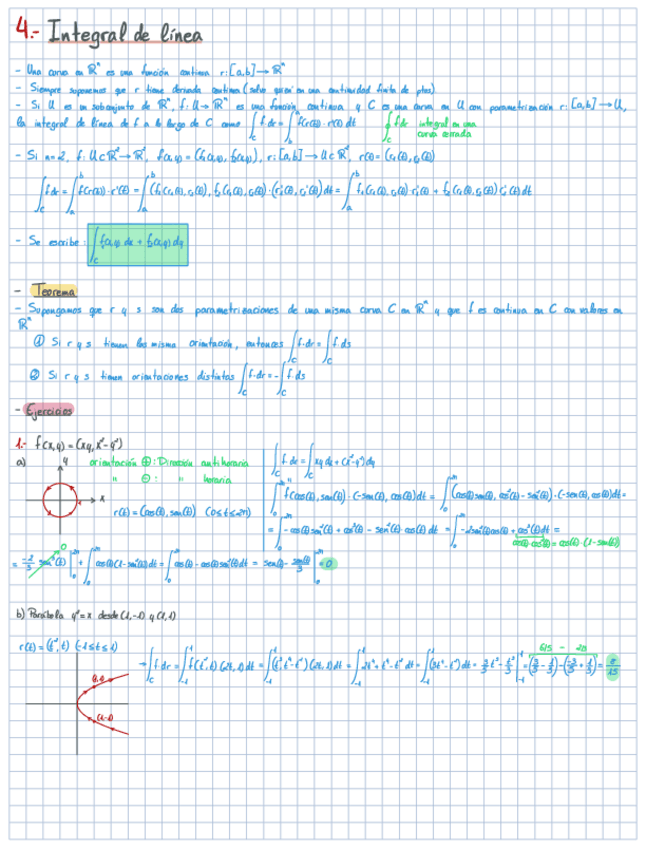 4.- Integral de línea
- Una curva en ℝⁿ es una función continua r:[a,b]→ℝⁿ
- Siempre suponemos que r tiene derivada continua (salvo quizá en una cantidad finita de ptos)
- Si U es un subconjunto de ℝⁿ, f:U→ℝⁿ es una función continua y C es una curva en U con parametrización r:[a,b]→U,
la integral de línea de f a lo largo de C como ∫ f dr = ∫ f(r(t))·r'(t) dt ∮ f dr integral en una
curva cerrada
- Si n=2, f:U⊂ℝ²→ℝ², f(x,y)=(f₁(x,y), f₂(x,y)), r:[a,b]→U⊂ℝ², r(t)=(r₁(t), r₂(t))
∫ f dr = ∫ f(r(t))·r'(t) = ∫ (f₁(r₁(t), r₂(t)), f₂(r₁(t), r₂(t))·(r₁'(t), r₂'(t)) dt = ∫ f₁(r₁(t), r₂(t))·r₁'(t) + f₂(r₁(t), r₂(t)) r₂'(t) dt
- Se escribe: ∫ f₁(x,y) dx + f₂(x,y) dy
- Teorema
- Supongamos que r y s son dos parametrizaciones de una misma curva C en ℝⁿ y que f es continua en C con valores en
ℝⁿ
① Si r y s tienen la misma orientación, entonces ∫ f·dr = ∫ f·ds
② Si r y s tienen orientaciones distintas ∫ f·dr = -∫ f·ds
- Ejercicios
1.- f(x,y) = (xy, x²-y²)
a) y orientación ⊕: Dirección antihoraria
" ⊖: " horaria
x
r(t)=(cos(t), sen(t)) (0≤t≤2π)
∫ f·dr = ∫ xy dx + (x²-y²) dy
∫ f(cos(t), sen(t))·(-sen(t), cos(t)) dt = ∫ (cos(t)·sen(t), cos²(t)-sen²(t))·(-sen(t), cos(t)) dt =
= ∫ -cos(t)sen²(t) + cos³(t) - sen²(t)·cos(t) dt = ∫ -2sen²(t)cos(t) + cos³(t) dt =
cos(t)·cos²(t) = cos(t)·(1-sen²(t))
= -2/3 sen³(t) | + ∫ cos(t)(1-sen²(t)) dt = ∫ cos(t) - cos(t)sen²(t) dt = sen(t) - sen³(t)/3 | = 0
b) Parábola y²=x desde (1,-1) y (1,1)
r(t)=(t²,t) (-1≤t≤1)
→ ∫ f·dr = ∫ f(t²,t)·(2t,1) dt = ∫ (t³, t⁴-t²)·(2t,1) dt = ∫ 2t⁴+t⁴-t² dt = ∫ (3t⁴-t²) dt = 3/5 t⁵ - t³/3 | = (3/5 - 1/3) - (-3/5 + 1/3) = 8/15
(1,1)
(1,-1)